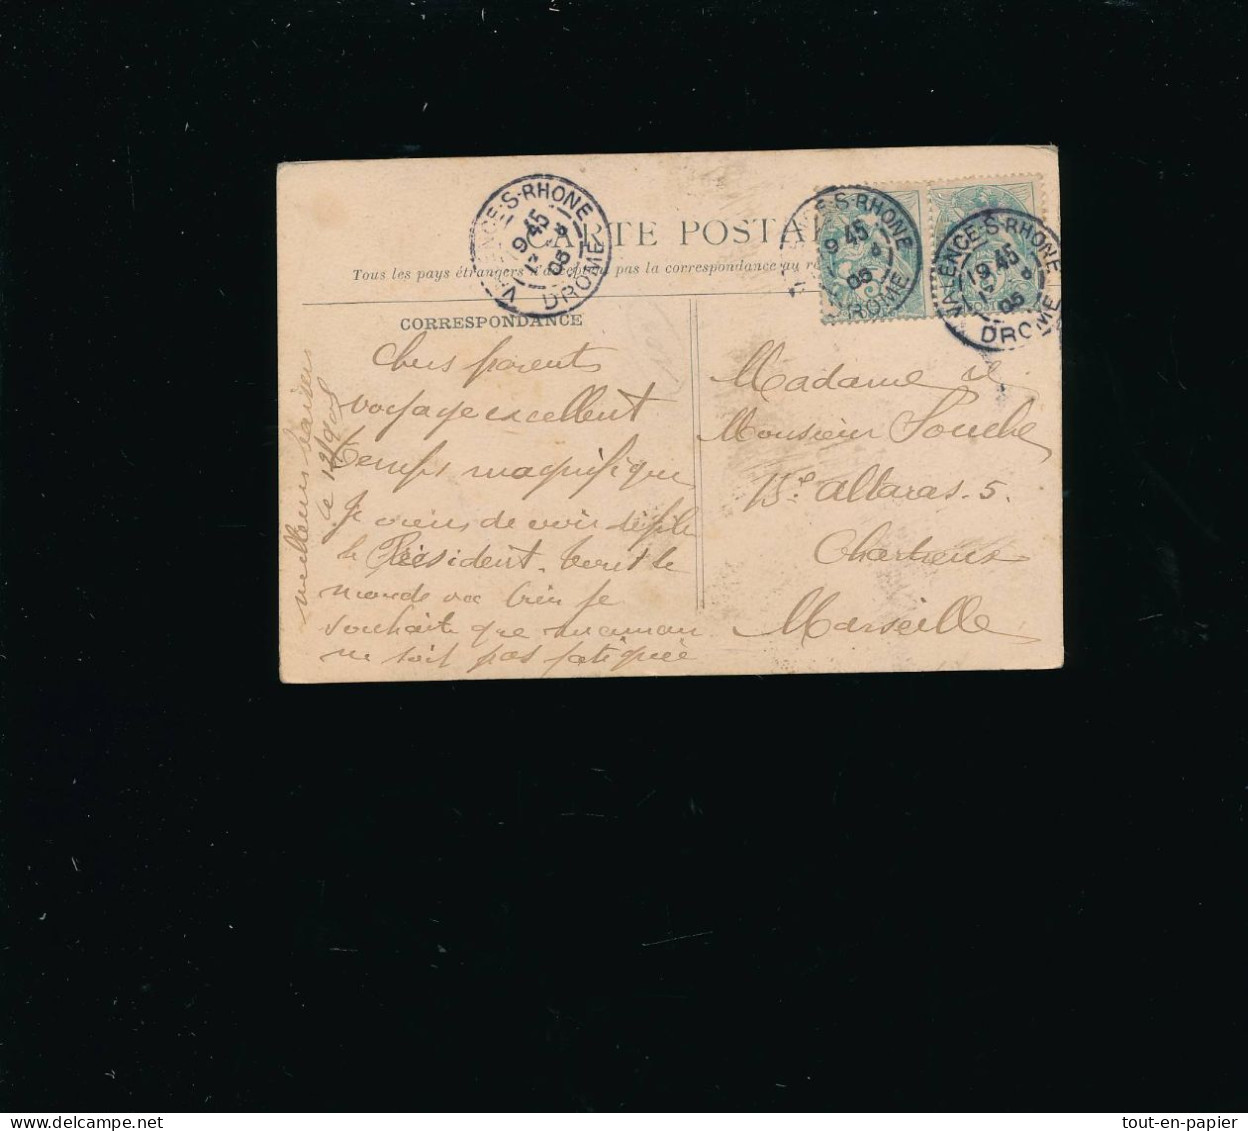 CARTE POSTA
Tous les pays étrangers n'acceptent pas la correspondance au
CORRESPONDANCE
VALENCE-S-RHONE
19 45
05
DROME
E-S-RHONE
9 45
05
DROME
VALENCE-S-RHONE
19 45
05
DROME
5
Chers parents
voyage excellent
Temps magnifique
Je viens de voir défiler
le Président. Tout le
monde va bien je
souhaite que maman
ne soit pas fatiguée
meilleurs baisers
le
Madame &
Monsieur Souche
Bd altaras. 5.
Chartreux
Marseille
tout-en-papier